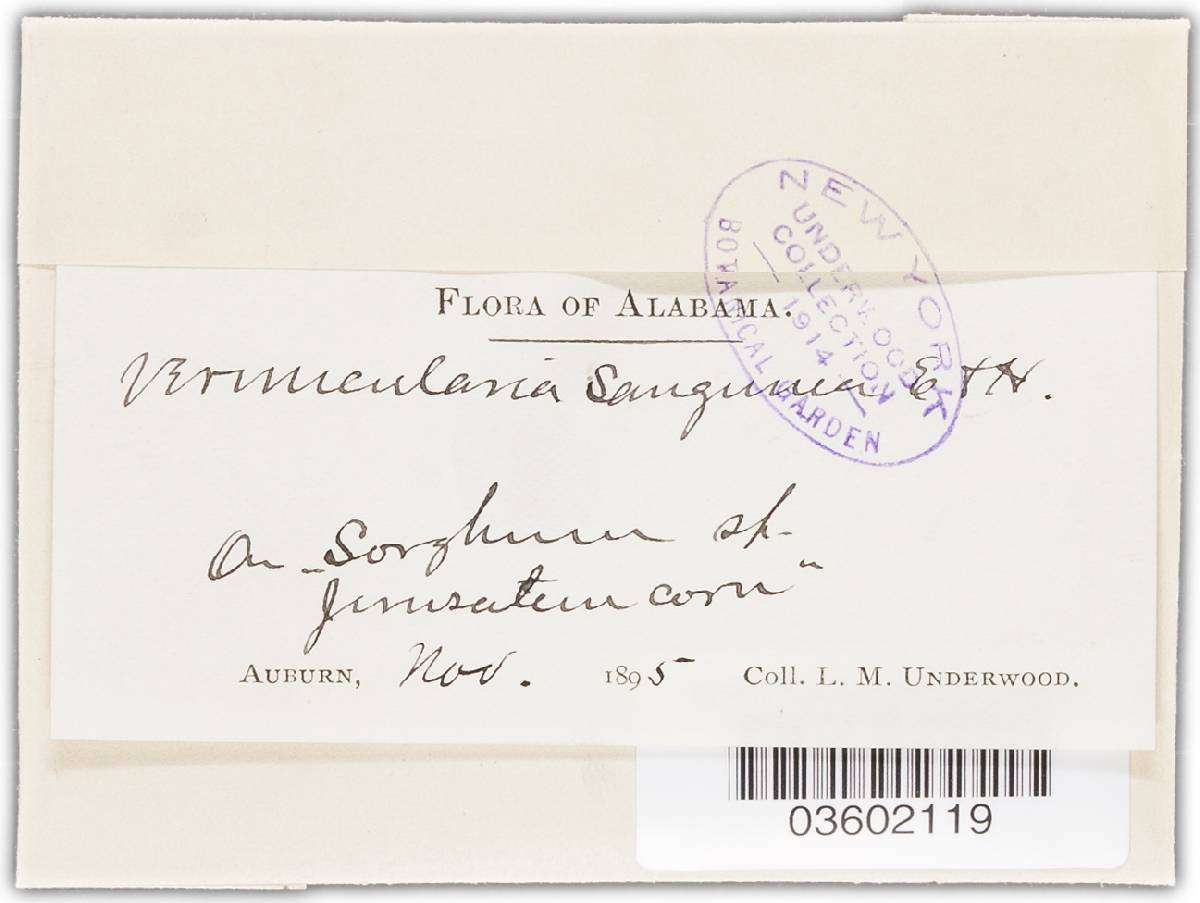 FLORA OF ALABAMA.
Vermicularia sanguinea E & H.
On "Sorghum sp.
Jerusalem corn"
AUBURN, Nov. 1895 Coll. L. M. UNDERWOOD.
NEW YORK
BOTANICAL GARDEN
UNDERWOOD
COLLECTION
— 1914 —
03602119